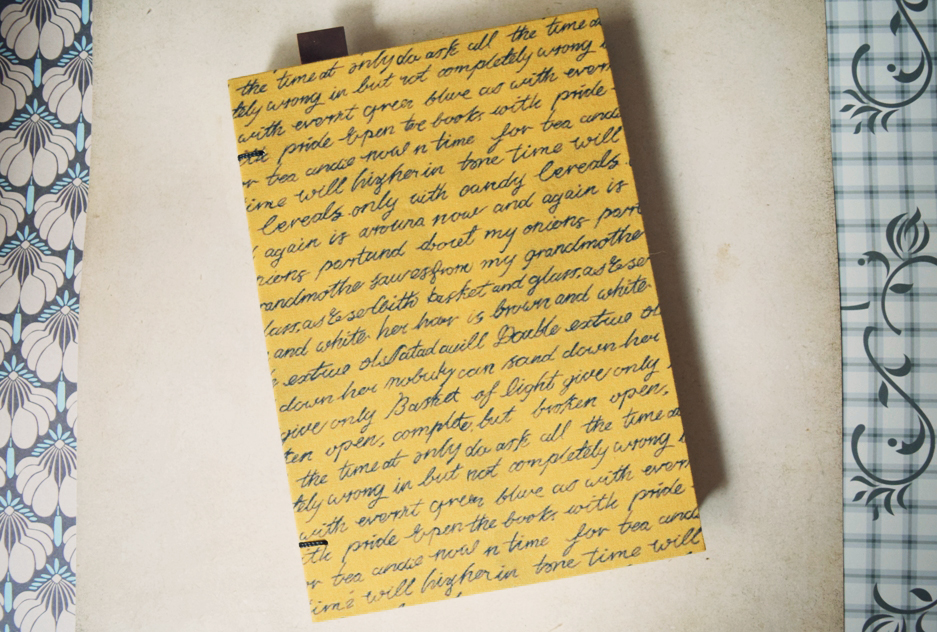 the time at only do ask all the time a
tely wrong in but not completely wrong
with evernt green blue as with ever
pride Open the book. with pride
or tea and now n time for tea and
time will higher in tone time will
Cereals only with candy Cereals
again is around now and again is
onions part and my onions part
randmothe from my grandmothe
basket and glass, as & se
and white her hair is brown and white
extrue Double extrue ol
down her nobody can sand down her
give only Basket of light give only
ten open, complete, but broken open,
the time at only do ask all the time a
tely wrong in but not completely wrong
with evernt green blue as with ever
th pride Open the book. with pride
or tea and now n time for tea and
time will higher in tone time will